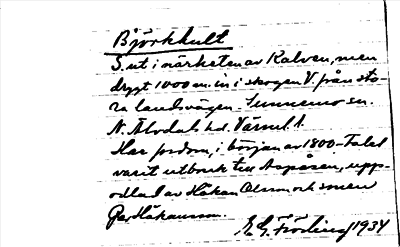 Björkhult
S. ut i närheten av Kalven, men
drygt 1000 m. in i skogen V. från sto-
ra landsvägen. Sunnemo sn.
N. Älvdals hd. Värml. l.
Har fordom, i början av 1800-talet
varit utbruk till Aspåsen, upp-
odlad av Håkan Olsson och sonen
Per Håkansson.
E. G. Fröding 1934